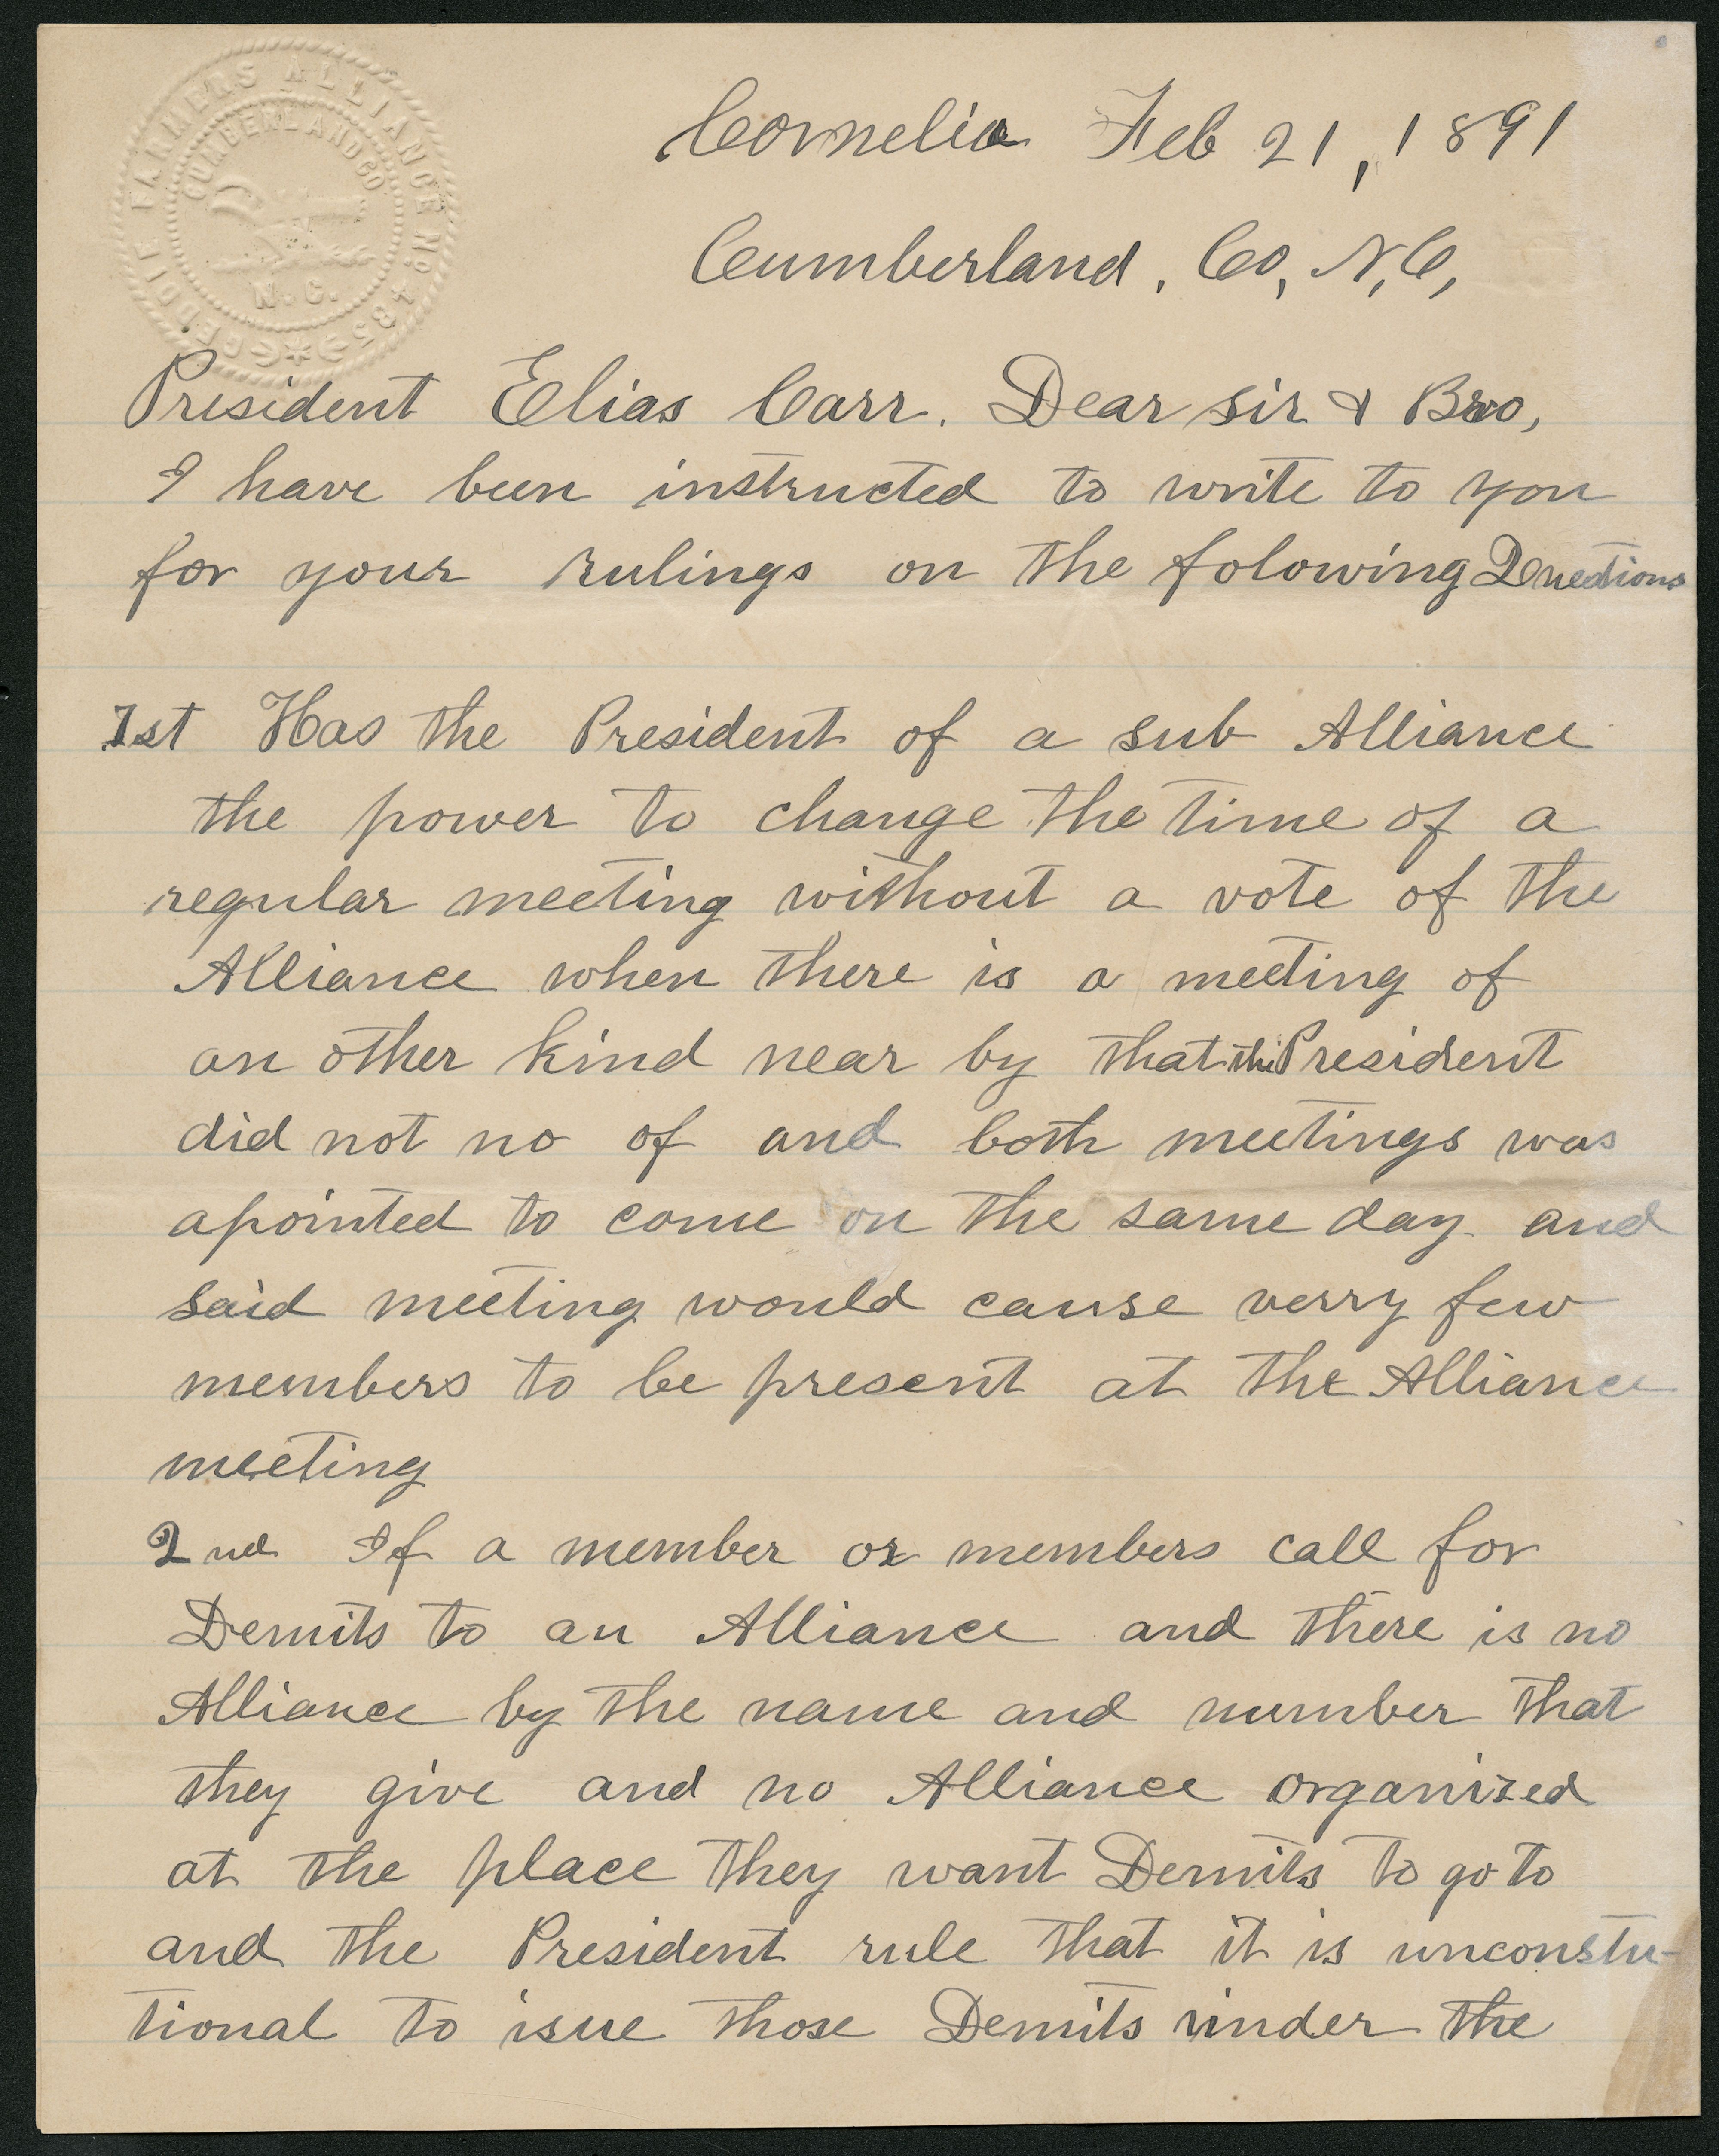 FARMERS ALLIANCE No. 1853
CUMBERLAND CO.
N. C.
Cornelia Feb 21, 1891
Cumberland, Co, N, C,
President Elias Carr. Dear sir & Bro,
I have been instructed to write to you
for your rulings on the folowing Quedtions
1st Has the President of a sub Alliance
the power to change the time of a
regular meeting without a vote of the
Alliance when there is a meeting of
an other kind near by that the President
did not no of and both meetings was
apointed to come on the same day and
said meeting would cause verry few
members to be present at the Alliance
meeting
2nd If a member or members call for
Demits to an Alliance and there is no
Alliance by the name and number that
they give and no Alliance organized
at the place they want Demits to go to
and the President rule that it is unconstu-
tional to isue those Demits under the